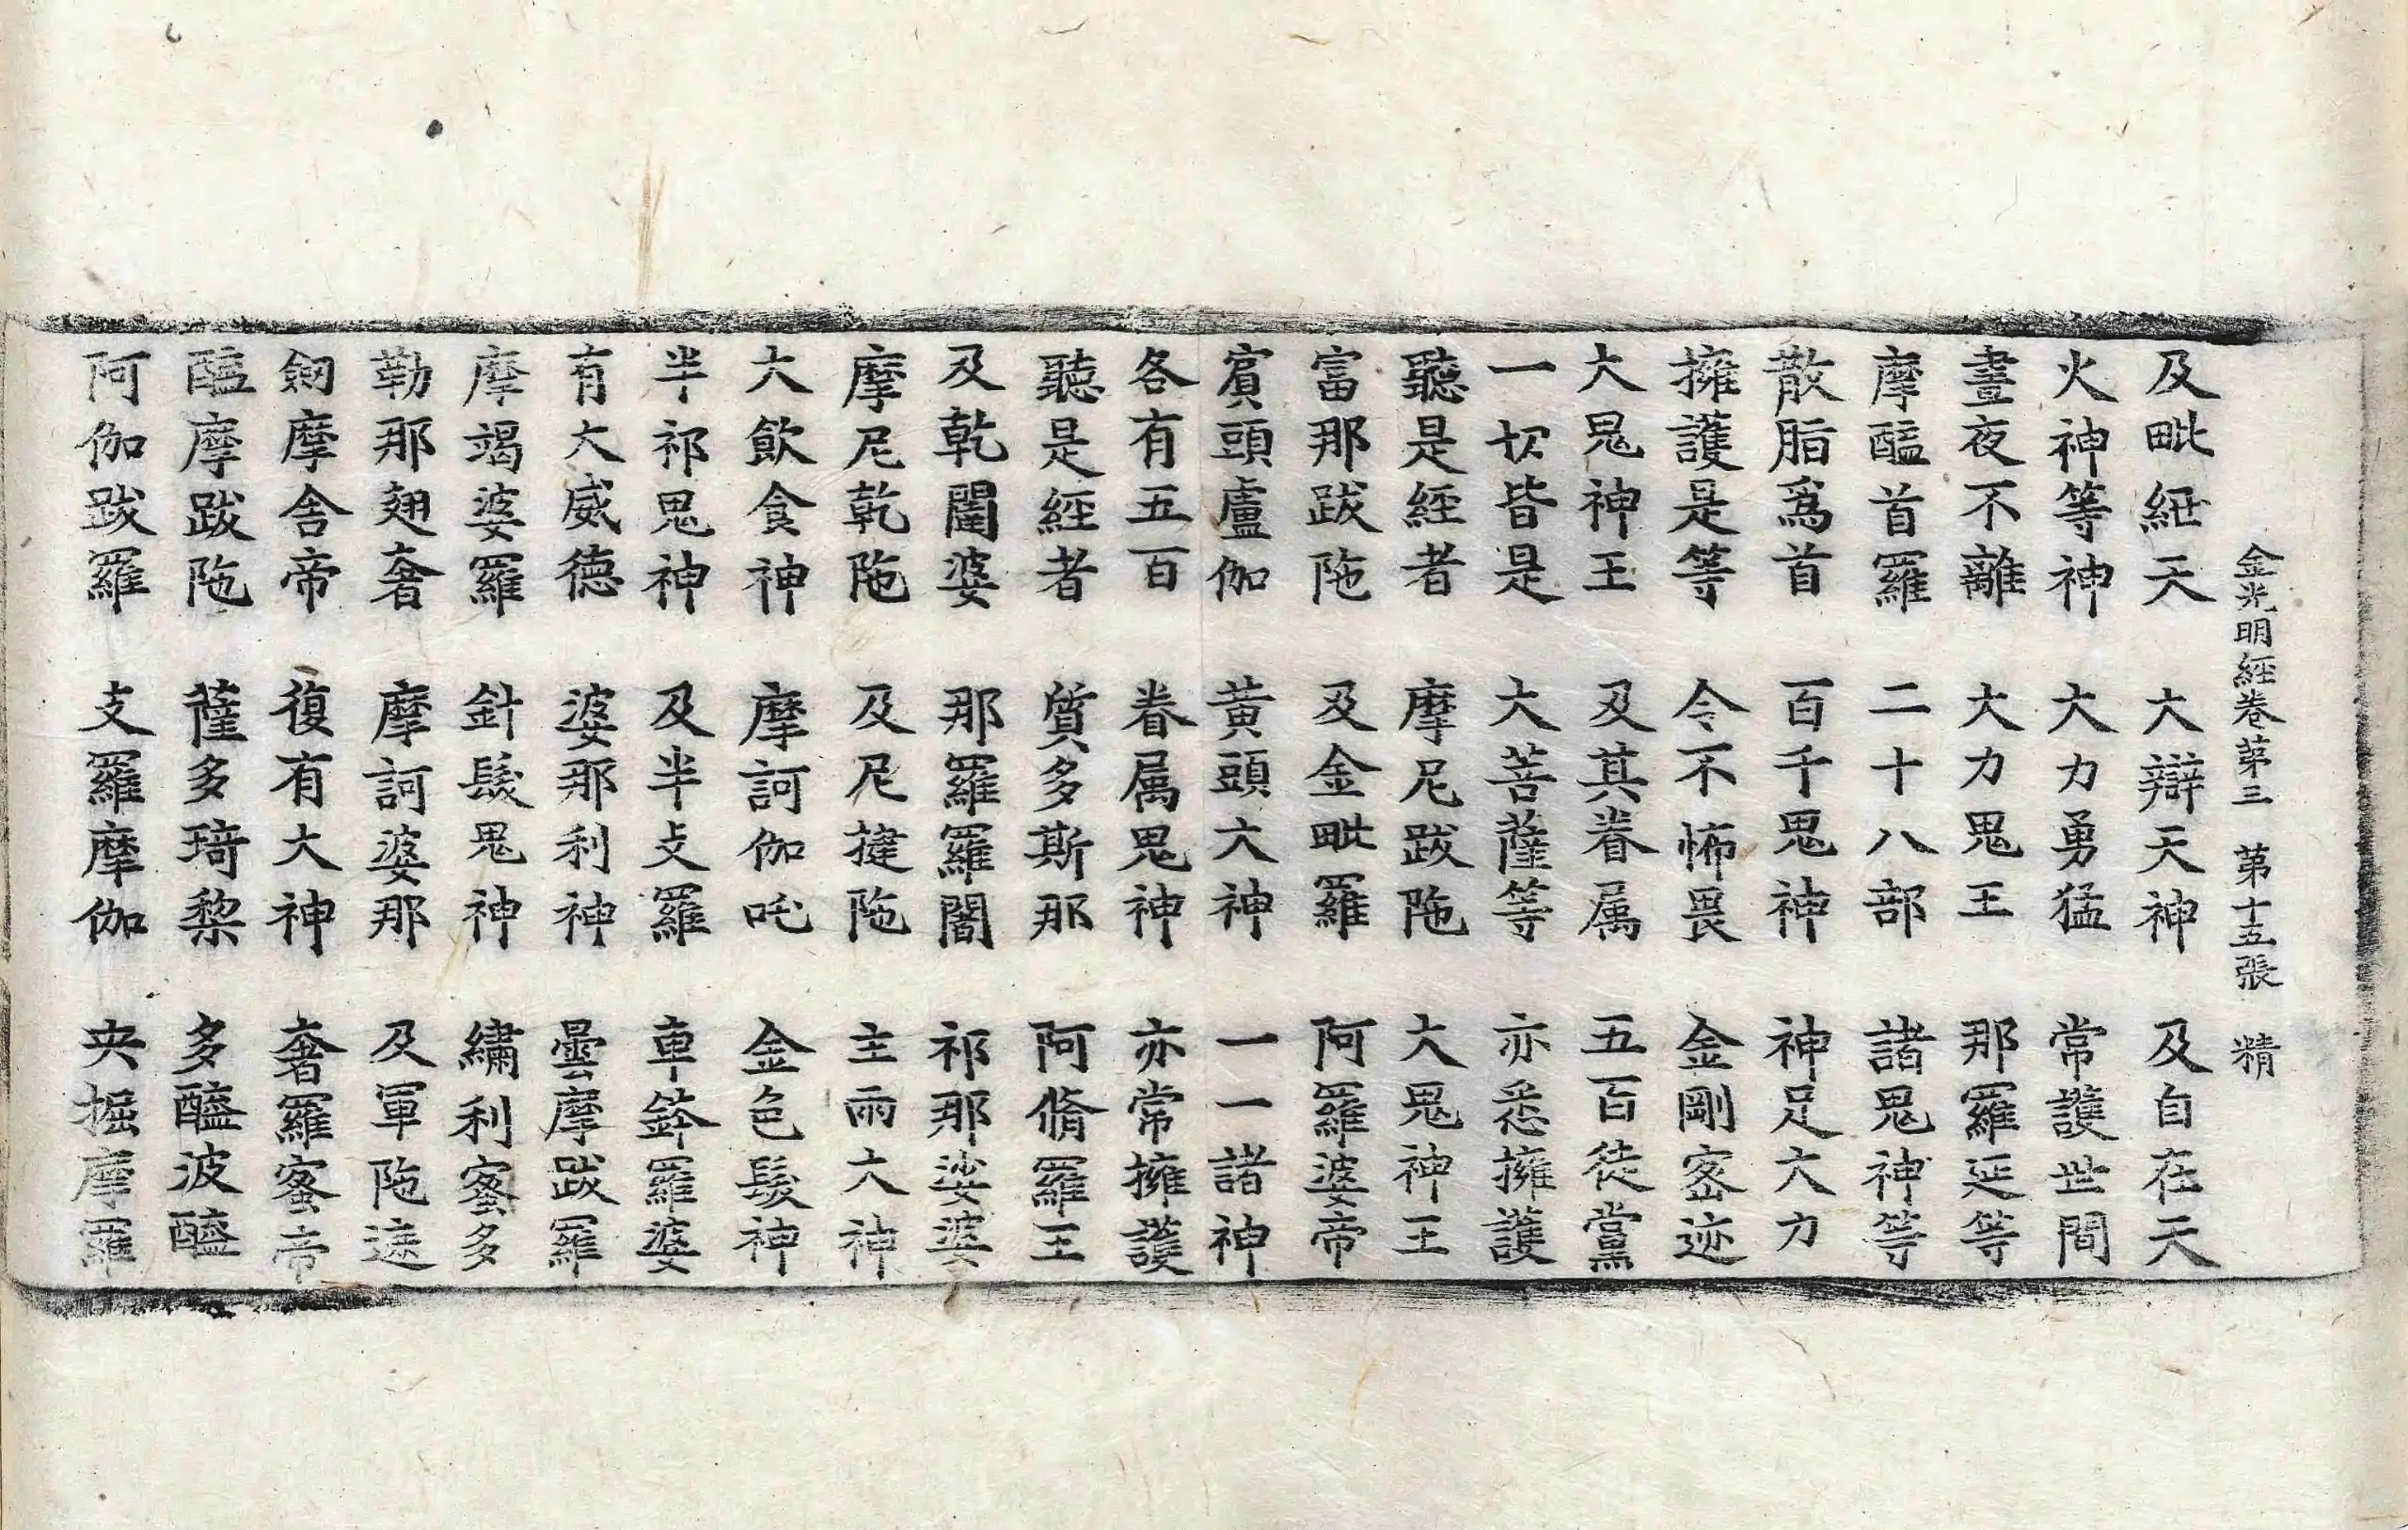 金光明經卷第三 第十五張 精
及毗紐天 大辯天神 及自在天
火神等神 大力勇猛 常護世間
晝夜不離 大力鬼王 那羅延等
摩醯首羅 二十八部 諸鬼神等
散脂爲首 百千鬼神 神足大力
擁護是等 令不怖畏 金剛密迹
大鬼神王 及其眷属 五百徒黨
一切皆是 大菩薩等 亦悉擁護
聽是經者 摩尼跋陁 大鬼神王
富那跋陁 及金毗羅 阿羅婆帝
賔頭盧伽 黄頭大神 一一諸神
各有五百 眷属鬼神 亦常擁護
聽是經者 質多斯那 阿脩羅王
及乾闥婆 那羅羅闍 祁那娑婆
摩尼乾陁 及尼揵陁 主雨大神
大飲食神 摩訶伽吒 金色髮神
半祁鬼神 及半支羅 車鉢羅婆
有大威德 婆那利神 曇摩跋羅
摩竭婆羅 針髮鬼神 繡利蜜多
勒那翅奢 摩訶婆那 及軍陁遮
劒摩舍帝 復有大神 奢羅蜜帝
醯摩跋陁 薩多琦梨 多醯波醯
阿伽跋羅 支羅摩伽 央掘摩羅